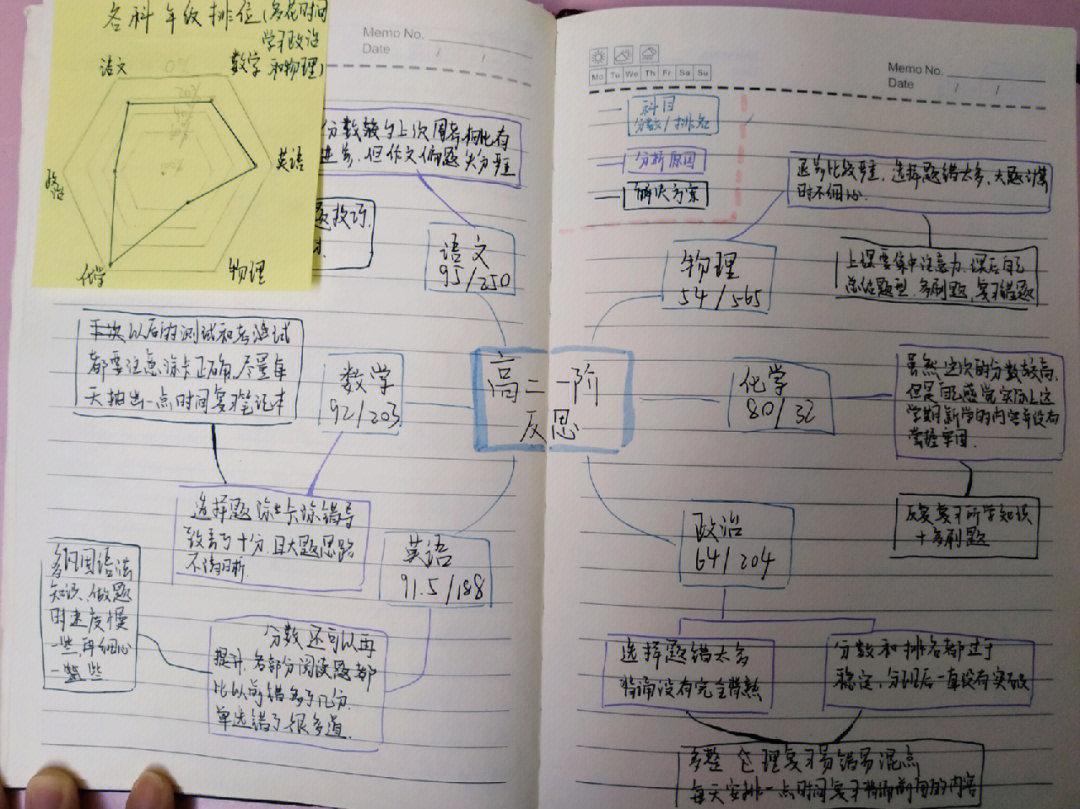 各科年级排位(多花时间
学习政治
和物理)
语文
数学
英语
物理
化学
政治
Memo No.
Date / /
分数较与上次周考相比有
进步,但作文偏题失分严重
题技巧,
语文
95/250
手次以后的测试和考试
都要注意涂卡正确,尽量每
天抽出一点时间复习笔记本
数学
92/203
选择题 涂卡涂错导
致丢了十分 且大题思路
不清晰
英语
91.5/188
多巩固语法
知识、做题
时速度慢
一些,再细心
一些
分数还可以再
提升,各部分阅读题都
比以前错多了几分.
单选错了很多道
高二一阶
反思
Mo Tu We Th Fr Sa Su
Memo No.
Date / /
科目
分数/排名
分析原因
解决方案
退步比较严重,选择题错太多、大题计算
时不细心
物理
54/565
上课要集中注意力,课后自己
总结题型,多刷题,复习错题
化学
80/32
虽然这次的分数较高,
但是自己感觉实际上这
学期新学的内容并没有
掌握牢固
反复复习所学知识
+多刷题
政治
64/204
选择题错太多
背诵没有完全背熟
分数和排名都过于
稳定,分班后一直没有突破
多整理复习易错易混点
每天安排一点时间复习背诵前面的内容